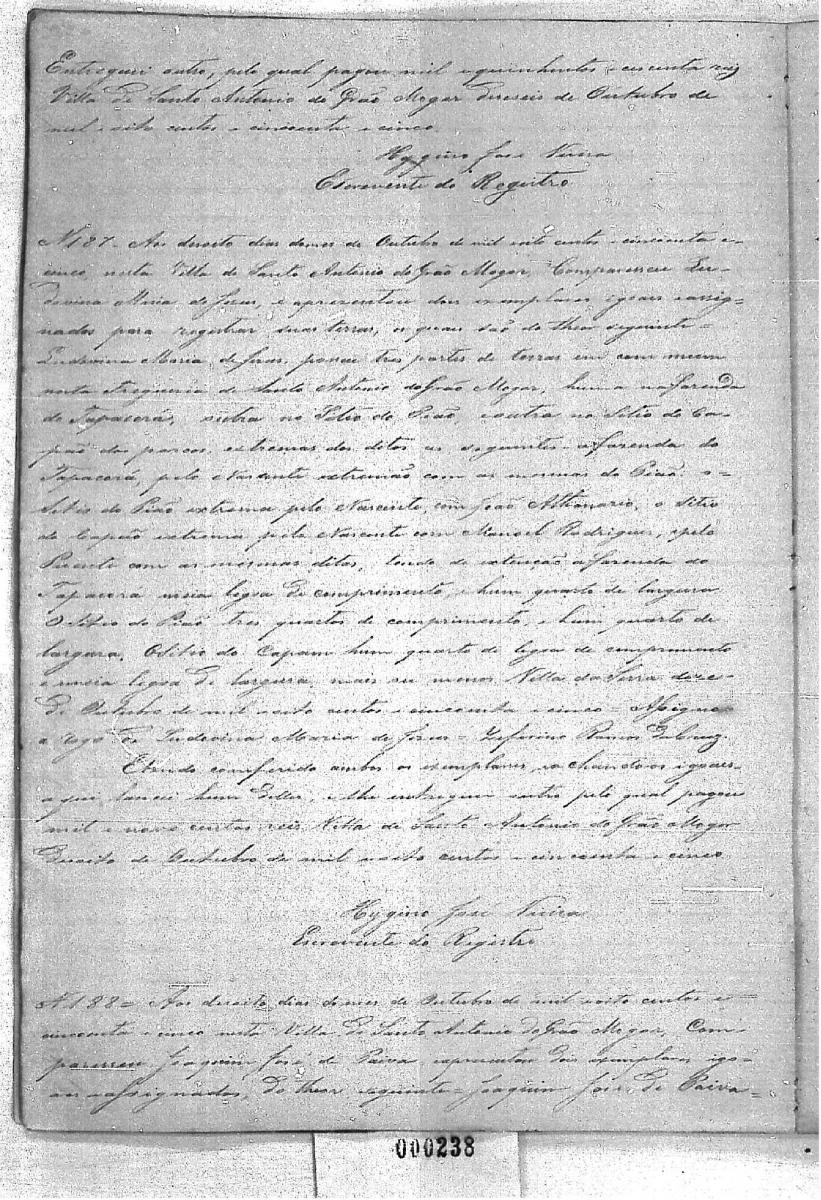 Entreguei outro, pelo qual pagou mil e quinhentos e cescenta reis
Villa de Santo Antonio do Grão Mogor deseseis de Outubro de
mil e oito centos e cincoenta e cinco
Hygino José Vieira
Escrevente do Registro
N 187 - Aos desoito dias do mes de Outubro de mil oito centos e cincoenta e
cinco nesta Villa de Santo Antonio do Grão Mogor, Compareceu Lu-
devina Maria de Jesus, e apresentou dois exemplares igoaes e assig-
nados para registrar suas terras, os quaes são do theor seguinte =
Ludevina Maria de Jesus, possue tres partes de terras em com mum
nesta Freguesia de Santo Antonio do Grão Mogor, huma na fasenda
do Tapacorá, outra no Sitio do Pião, e outra no Sitio do Ca-
pão dos porcos, extremas dos ditos as seguintes = a fasenda do
Tapacorá, pelo Nascente extremão com as mesmas do Pião, o =
Sitio do Pião extrema pelo Nascente, com João Athanario, o Sitio
do Capão extrema pelo Nascente com Manoel Rodrigues, e pelo
Poente com as mesmas ditas, tendo de extenção a fasenda do
Tapacorá meia legoa de comprimento, e hum quarto de largura
O Sitio do Pião tres quartos de comprimento, e hum quarto de
largura, O Sitio do Capam hum quarto de legoa de comprimento
e meia legoa de largura mais ou menos. Villa da Serra dose
de Outubro de mil e oito centos e cincoenta e cinco = Assigno
a rogo de Ludevina Maria de Jesus = Zeferino Ramos
E sendo conferido ambos os exemplares, e achando os igoaes,
aqui lancei hum delles, e lhe entreguei outro pelo qual pagou
mil e nove centos reis Villa de Santo Antonio do Grão Mogor
Desoito de Outubro de mil e oito centos e cincoenta e cinco
Hygino José Vieira
Escrevente do Registro
N 188 = Aos desoito dias do mes de Outubro de mil e oito centos e
cincoenta e cinco nesta Villa de Santo Antonio do Grão Mogor, Com-
pareceu Joaquim José de Paiva, e apresentou dois exemplares igo-
aes e assignados, do theor seguinte = Joaquim José de Paiva =
000238